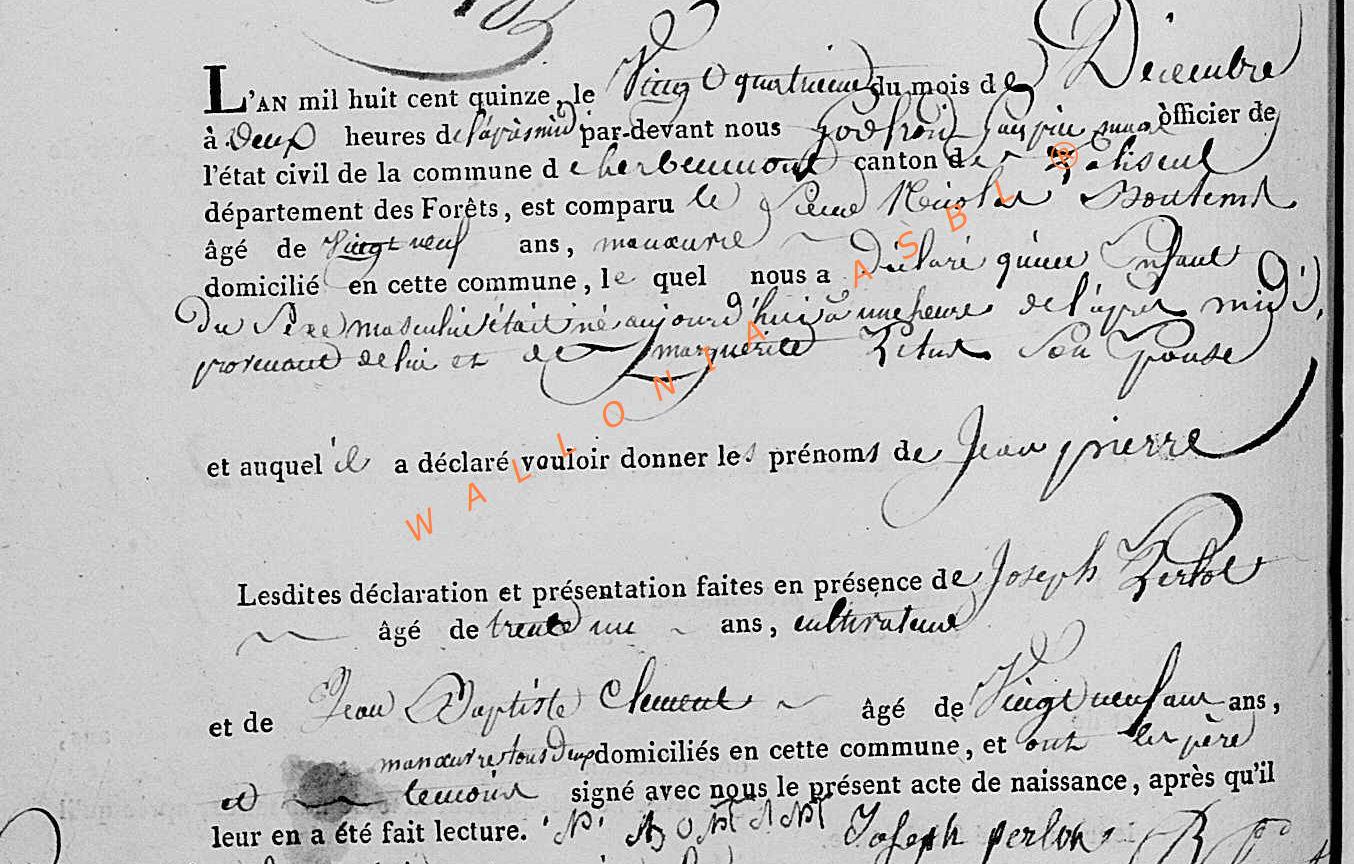 L'AN mil huit cent quinze, le Vingt quatrieme du mois de Décembre
à Deux heures de l'aprèsmidi par-devant nous officier de
l'état civil de la commune d'herbeumont canton de
département des Forêts, est comparu le Sieur Nicolas Bontemt
âgé de Vingt neuf ans, manœuvre
domicilié en cette commune, lequel nous a Déclaré qu'un Enfant
Du Sexe masculin était né aujourd'hui à une heure de l'après midi,
provenant de lui et de marguerite Son Epouse
et auquel il a déclaré vouloir donner les prénoms de Jean pierre
Lesdites déclaration et présentation faites en présence de Joseph Perlot
âgé de trente un ans, cultivateur
et de Jean Baptiste Clement âgé de Vingt neuf ans ans,
manœuvre tous Deux domiciliés en cette commune, et ont les père
et temoins signé avec nous le présent acte de naissance, après qu'il
leur en a été fait lecture. Joseph perlot
WALLONIA ASBL ®